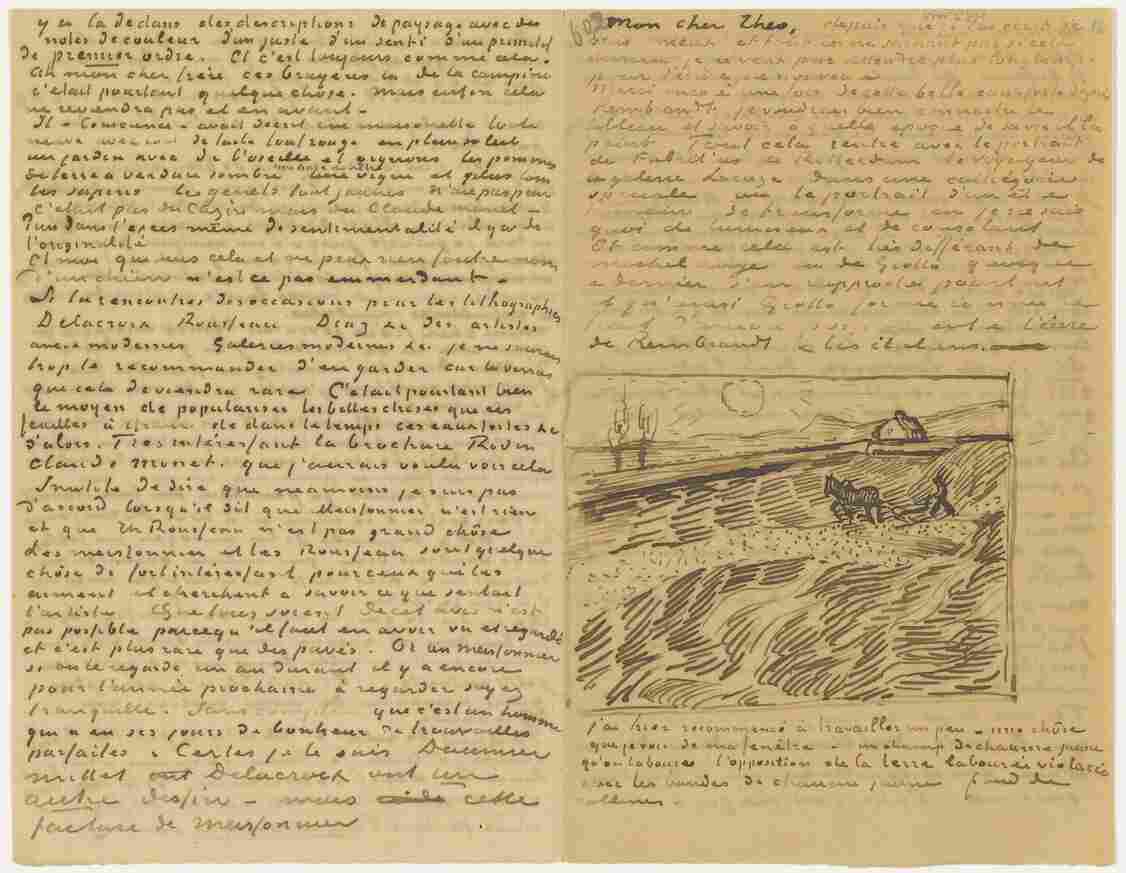 y en la dedans des descriptions de paysage avec des
notes de couleur d'un juste d'un senti d'un primitif
de premier ordre. Et c'est toujours comme cela.
Ah mon cher frère ces bruyères de la campine
c'était pourtant quelque chôse. mais enfin cela
ne reviendra pas et en avant –
Il – Conscience – avait décrit une maisonnette toute
neuve avec toit de tuile tout rouge en plein soleil
un jardin avec de l'oseille et oignons les pommes
de terre à verdure sombre une vigne et plus loin
les sapins les genets tout jaunes n'aie pas peur
c'était pas du Cazin mais du Claude monet –
Puis dans l'exces même de sentimentalité il y a de
l'originalité
Et moi qui sens cela et ne peux rien foutre nom
d'un chien n'est ce pas emmerdant –
Si tu rencontres des occasions pour les lithographies
Delacroix Rousseau Diaz &c des artistes
anc & modernes Galeries modernes &c. je ne saurais
trop te recommander d'en garder car tu verras
que cela deviendra rare C'était pourtant bien
le moyen de populariser les belles choses que ces
feuilles à franc de dans le temps ces eaux fortes &c
d'alors. Tres intéressant la brochure Rodin
Claude monet. que j'aurais voulu voir cela
Inutile de dire que néamoins je suis pas
d'accord lorsqu'il dit que Meissonnier n'est rien
et que Th Rousseau n'est pas grand chôse
des meissonnier et les Rousseau sont quelque
chôse de fort intéressant pour ceux qui les
aiment et cherchent à savoir ce que sentait
l'artiste Que tous soient de cet avis n'est
pas possible parcequ'il faut en avoir vu et regardé
et c'est plus rare que des pavés. Or un meissonnier
si on le regarde un an durant il y a encore
pour l'année prochaine à regarder soyez
tranquille. Sans compter que c'est un homme
qui a eu ses jours de bonheur de trouvailles
parfaites. Certes je le sais Daumier
millet Delacroix ont un
autre dessin – mais cette
facture de meissonnier
mon cher Theo, depuis que je t'ai écrit je
vais mieux et tout en ne sachant pas si cela
durera je ne veux pas attendre plus longtemps
pour t'écrire de nouveau
Merci encore une fois de cette belle eau forte d'après
Rembrandt je voudrais bien connaitre le
tableau et savoir à quelle époque de sa vie il l'a
peint Tout cela rentre avec le portrait
de Fabritius de Rotterdam le voyageur de
la galerie Lacaze dans une catégorie
speciale ou le portrait d'un être
humain se transforme en je ne sais
quoi de lumineux et de consolant
Et comme cela est très différent de
michel ange ou de Giotto quoique
ce dernier s'en rapproche pourtant
est à l'œuvre
de Rembrandt & les italiens.
j'ai hier recommencé à travailler un peu – une chôse
que je vois de ma fenêtre – un champ de chaume jaune
qu'on laboure l'opposition de la terre labourée violacée
avec les bandes de chaume jaune fond de
collines –